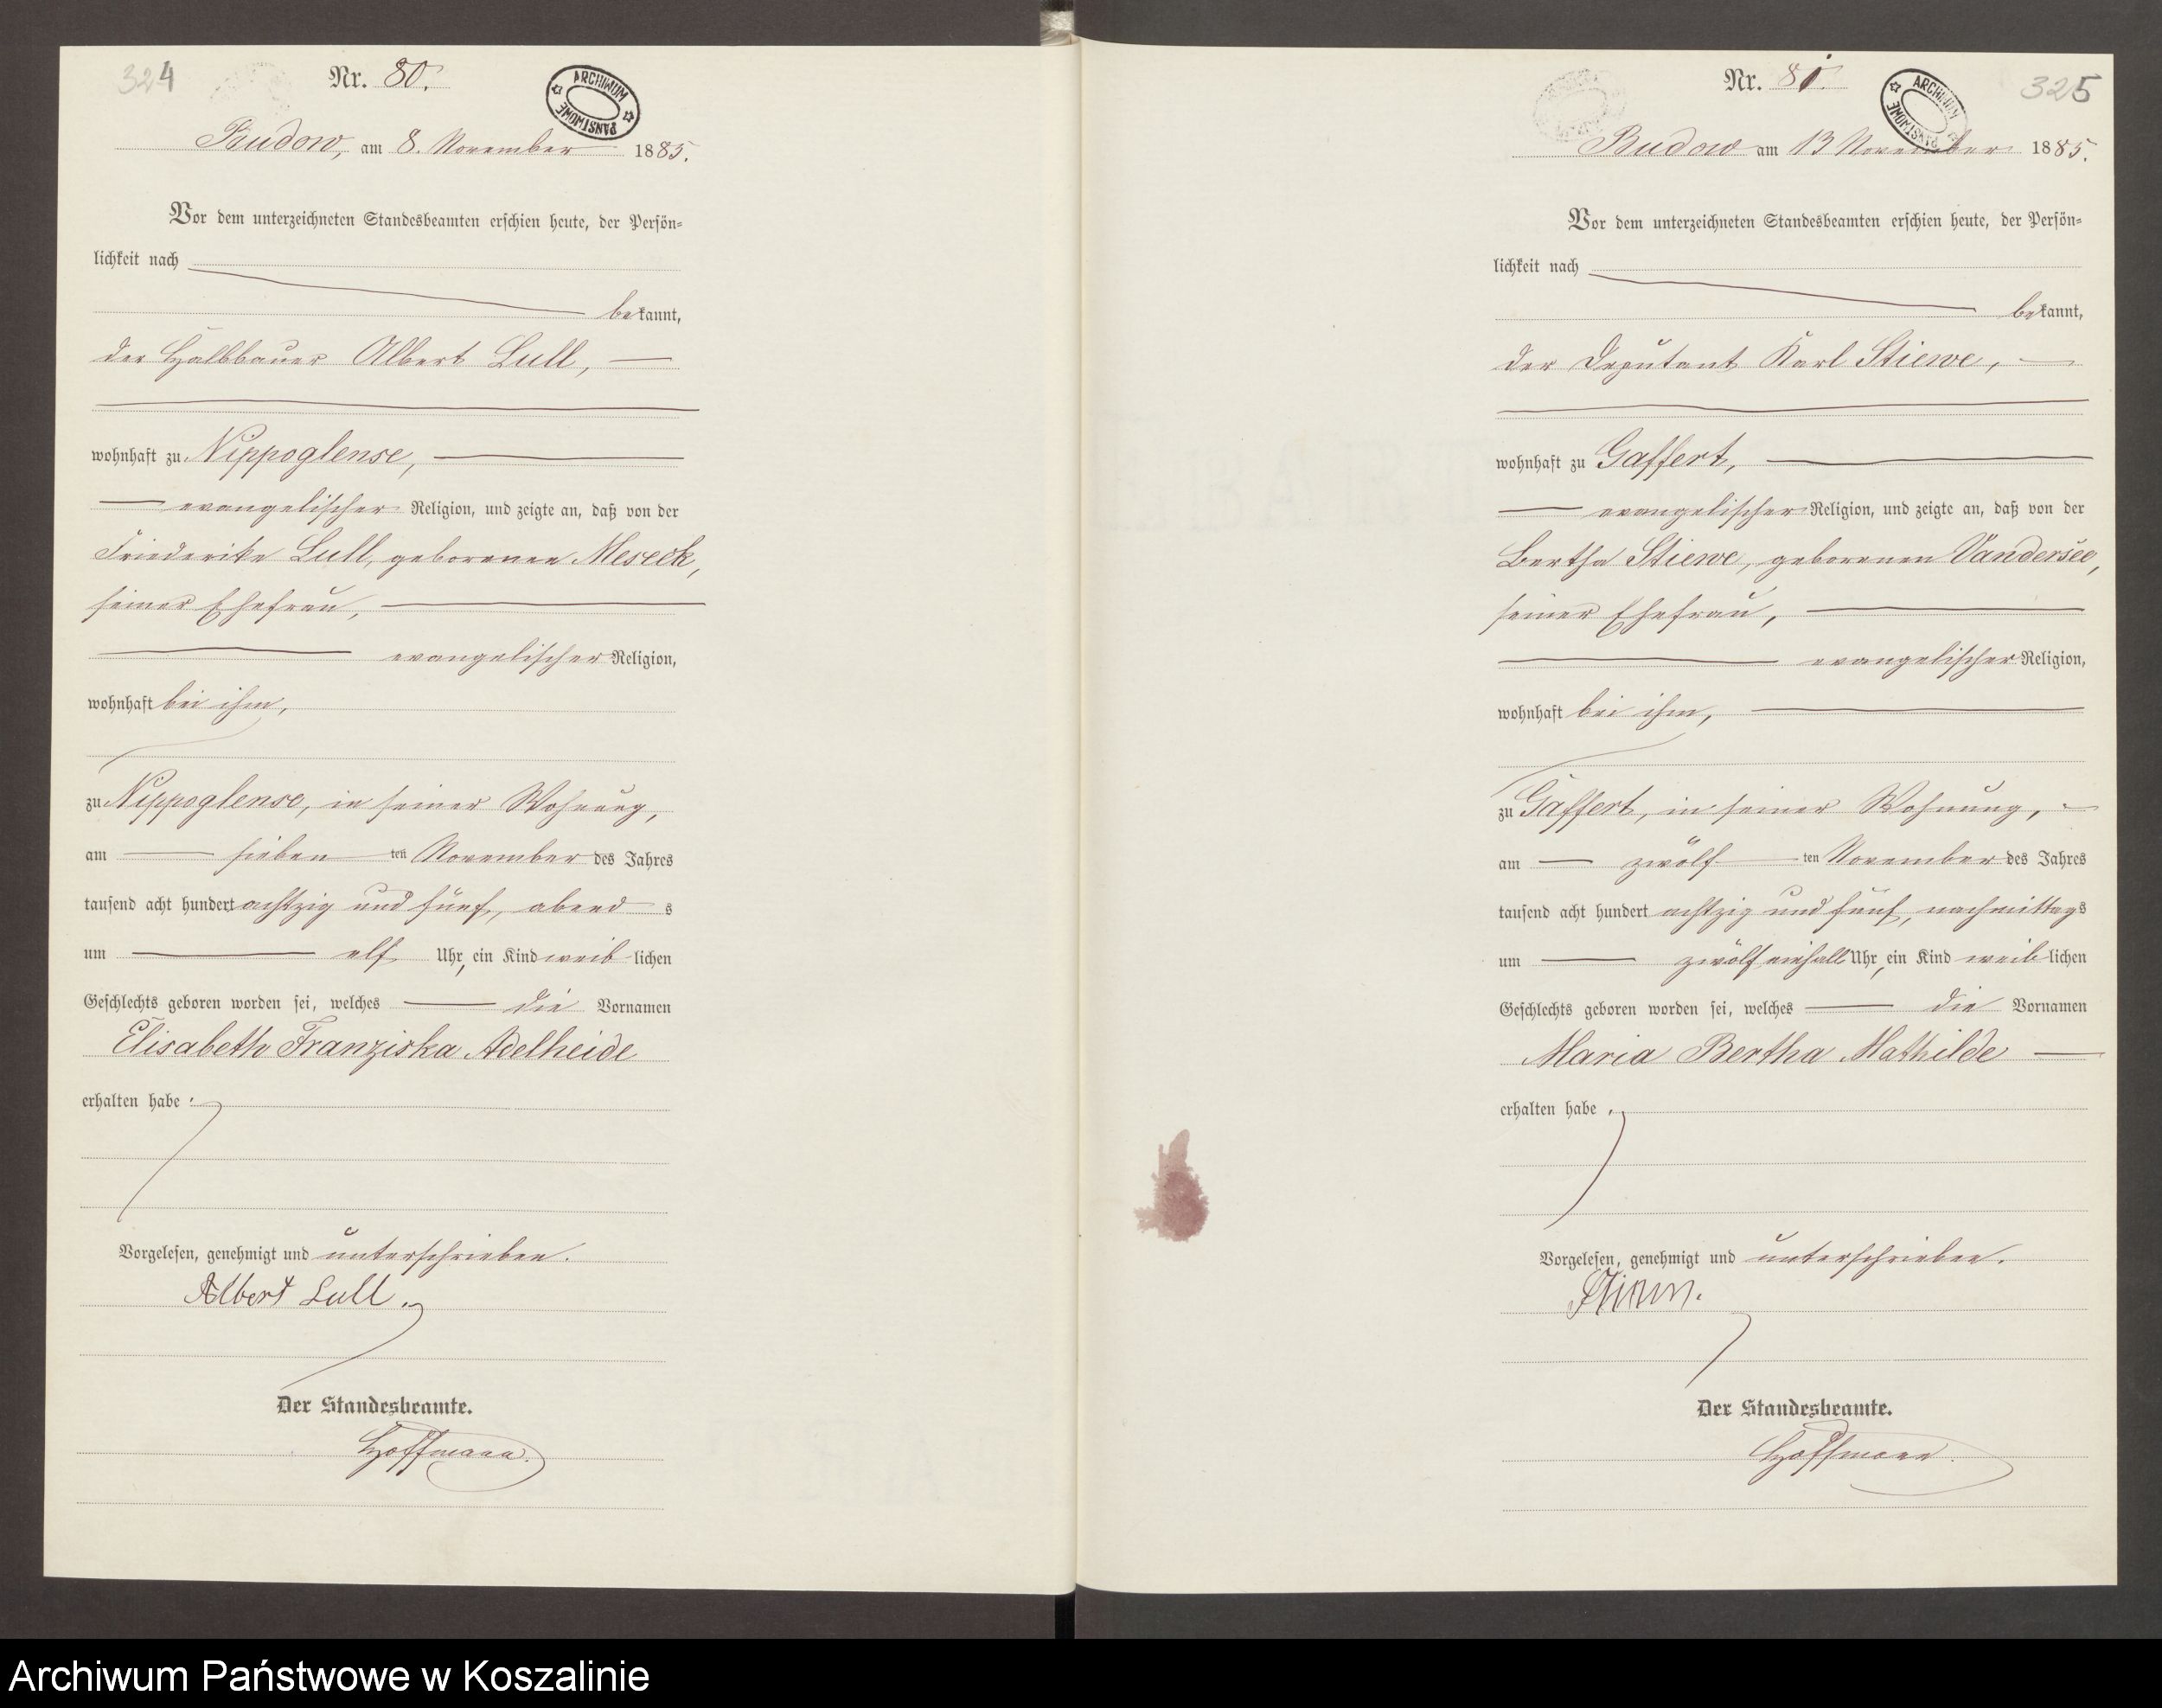 324
Nr. 80.
ARCHIWUM PAŃSTWOWE
Budow, am 8. November 1885.
Vor dem unterzeichneten Standesbeamten erschien heute, der Persön-
lichkeit nach
bekannt,
der Halbbauer Albert Lull,
wohnhaft zu Nippoglense,
evangelischer Religion, und zeigte an, daß von der
Friederike Lull, geborenen Meseck,
seiner Ehefrau,
evangelischer Religion,
wohnhaft bei ihm,
zu Nippoglense, in seiner Wohnung,
am sieben ten November des Jahres
tausend acht hundert achtzig und fünf, abend s
um elf Uhr, ein Kind weib lichen
Geschlechts geboren worden sei, welches die Vornamen
Elisabeth Franziska Adelheide
erhalten habe.
Vorgelesen, genehmigt und unterschrieben.
Albert Lull.
Der Standesbeamte.
Hoffmann.
Nr. 81.
ARCHIWUM PAŃSTWOWE
325
Budow am 13 November 1885.
Vor dem unterzeichneten Standesbeamten erschien heute, der Persön-
lichkeit nach
bekannt,
der Deputant Karl Stiewe,
wohnhaft zu Gaffert,
evangelischer Religion, und zeigte an, daß von der
Bertha Stiewe, geborenen Vandersee,
seiner Ehefrau,
evangelischer Religion,
wohnhaft bei ihm,
zu Gaffert, in seiner Wohnung,
am zwölf ten November des Jahres
tausend acht hundert achtzig und fünf, nachmittags
um zwölf einhalb Uhr, ein Kind weib lichen
Geschlechts geboren worden sei, welches die Vornamen
Maria Bertha Mathilde
erhalten habe.
Vorgelesen, genehmigt und unterschrieben.
Der Standesbeamte.
Hoffmann.
Archiwum Państwowe w Koszalinie